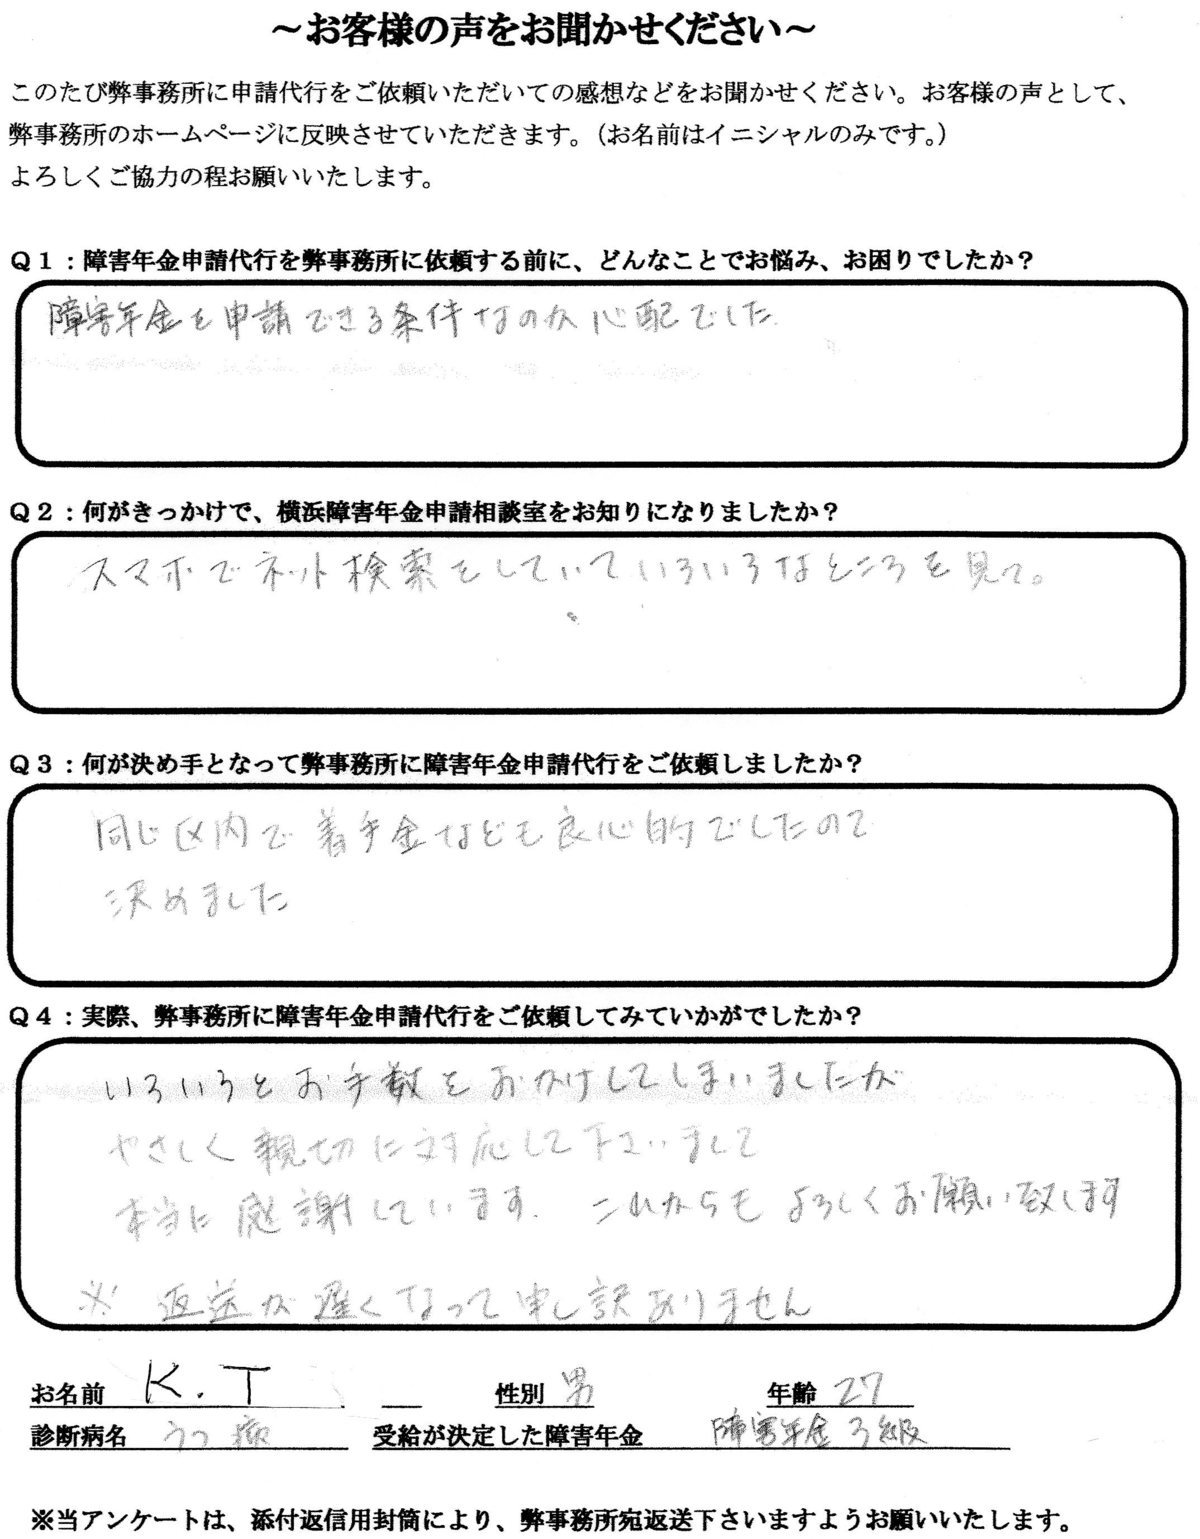 ～お客様の声をお聞かせください～
このたび弊事務所に申請代行をご依頼いただいての感想などをお聞かせください。お客様の声として、
弊事務所のホームページに反映させていただきます。（お名前はイニシャルのみです。）
よろしくご協力の程お願いいたします。
Q1：障害年金申請代行を弊事務所に依頼する前に、どんなことでお悩み、お困りでしたか？
障害年金を申請できる条件なのか心配でした.
Q2：何がきっかけで、横浜障害年金申請相談室をお知りになりましたか？
スマホでネット検索をしていていろいろなところを見て。
Q3：何が決め手となって弊事務所に障害年金申請代行をご依頼しましたか？
同じ区内で着手金なども良心的でしたので
決めました
Q4：実際、弊事務所に障害年金申請代行をご依頼してみていかがでしたか？
いろいろとお手数をおかけしてしまいましたが
やさしく親切に対応して下さいまして
本当に感謝しています. これからもよろしくお願い致します
※ 返送が遅くなって申し訳ありません
お名前 K.T 性別 男 年齢 27
診断病名 うつ病 受給が決定した障害年金 障害年金3級
※当アンケートは、添付返信用封筒により、弊事務所宛返送下さいますようお願いいたします。